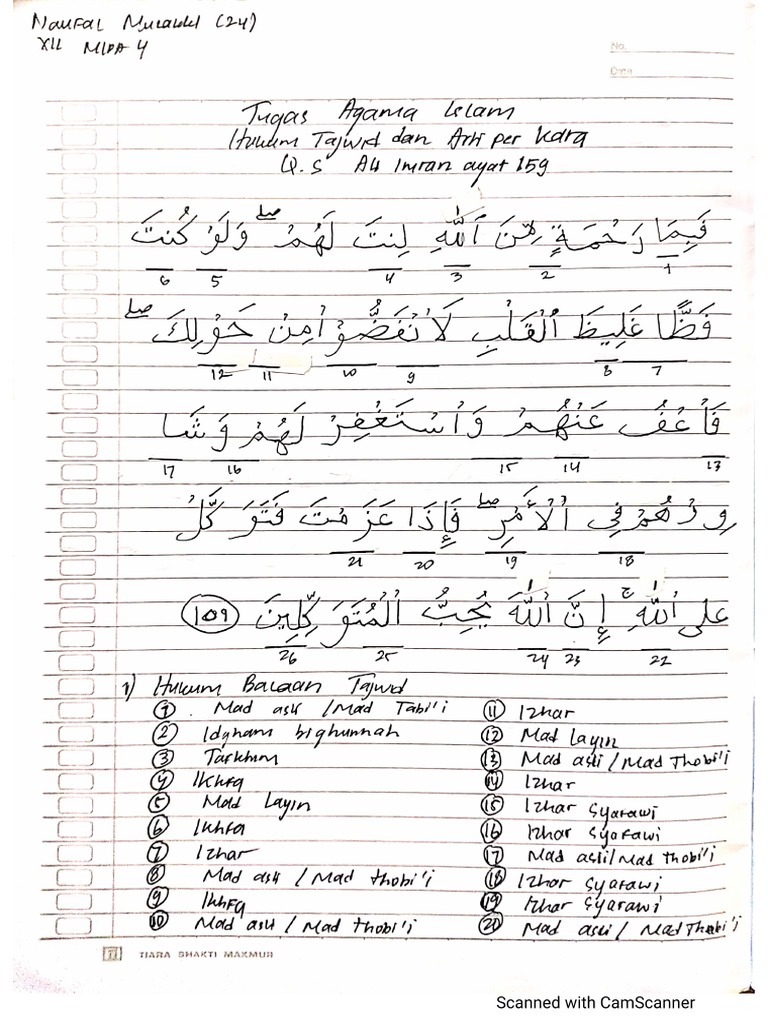 Naufal (24)
XII MIPA 4
No.
Date
Tugas Agama Islam
Hukum Tajwid dan Arti per Kata
Q.S Ali Imran ayat 159
فَبِمَا رَحْمَةٍ مِّنَ ٱللَّهِ لِنتَ لَهُمْ ۖ وَلَوْ كُنتَ
1 2 3 4 5 6
فَظًّا غَلِيظَ ٱلْقَلْبِ لَانْفَضُّوْا مِنْ حَوْلِكَ ۖ
7 8 9 10 11 12
فَاعْفُ عَنْهُمْ وَاسْتَغْفِرْ لَهُمْ وَشَا
13 14 15 16 17
وِرْهُمْ فِى الْأَمْرِ ۖ فَإِذَا عَزَمْتَ فَتَوَكَّلْ
18 19 20 21
على اللّٰهِ ۚ إِنَّ اللّٰهَ يُحِبُّ الْمُتَوَكِّلِينَ 159
22 23 24 25 26
1) Hukum Bacaan Tajwid
① Mad asli / Mad Tabi'i
② Idgham bighunnah
③ Tafkhim
④ Ikhfa
⑤ Mad Layin
⑥ Ikhfa
⑦ Izhar
⑧ Mad asli / Mad thobi'i
⑨ Ikhfa
⑩ Mad asli / Mad thobi'i
⑪ Izhar
⑫ Mad layin
⑬ Mad asli / Mad Thobi'i
⑭ Izhar
⑮ Izhar Syafawi
⑯ Izhar syafawi
⑰ Mad asli / Mad thobi'i
⑱ Izhar syafawi
⑲ Izhar Syafawi
⑳ Mad asli / Mad Thobi'i
TIARA SHAKTI MAKMUR
Scanned with CamScanner